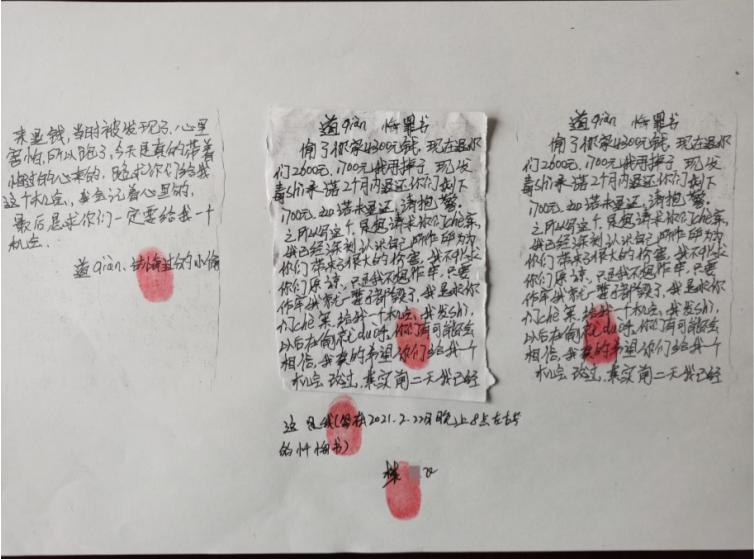 来退钱,当时被发现了,心里
害怕,所以跑了,今天是真的带着
悔过的心来的,跪求你们给我
这个机会,我会记着心里的,
最后是求你们一定要给我一个
机会.
道qiàn、悔过的小偷
道qiàn 悔罪书
偷了你家4300元钱,现在退你
们2600元,1700元我用掉了,现发
毒shì承诺2个月内退还你们剩下
1700元,如诺未退还,请抱警.
之所以写这个,是想请求你们chè案,
我已经深刻认识自己所作所为为
你们带来了很大的伤害,我不求
你们原谅,只是我不想作牢,只要
作牢我家一辈子都毁了,我是求你
们chè案,给我一个机会,我发shì,
以后在偷就du,你们有可能不会
相信,我真的希望你们给我一个
机会改过,其实前二天我已经
道qiàn 悔罪书
偷了你家4300元钱,现在退你
们2600元,1700元我用掉了,现发
毒shì承诺2个月内退还你们剩下
1700元,如诺未退还,请抱警.
之所以写这个,是想请求你们chè案,
我已经深刻认识自己所作所为为
你们带来了很大的伤害,我不求
你们原谅,只是我不想作牢,只要
作牢我家一辈子都毁了,我是求你
们chè案,给我一个机会,我发shì,
以后在偷就du,你们有可能不会
相信,我真的希望你们给我一个
机会改过,其实前二天我已经
这是我(写在2021.2.22日晚上8点左右
的忏悔书)